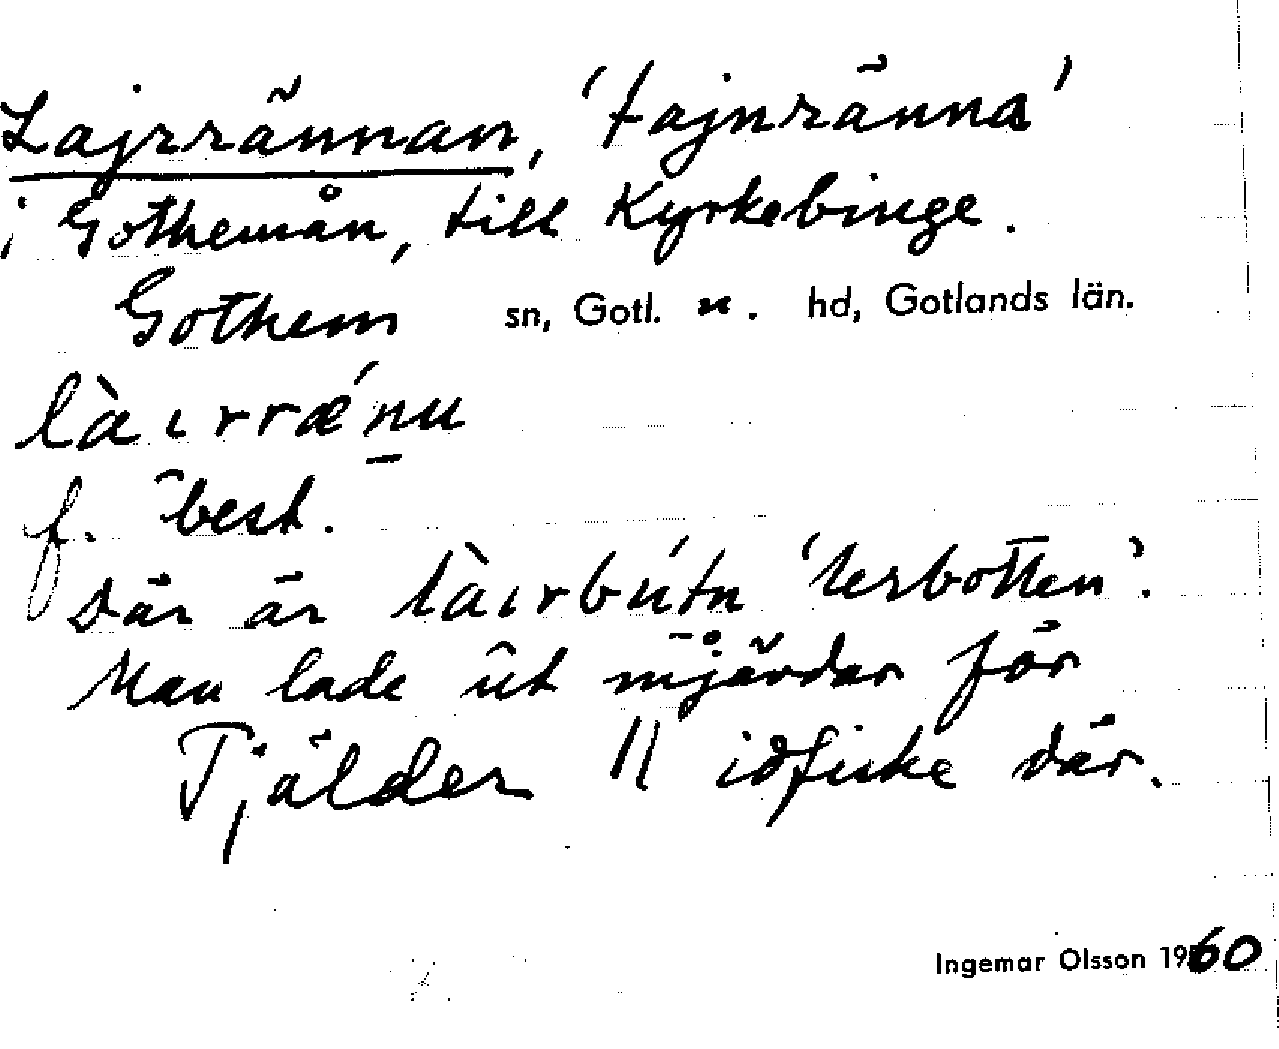 Lajrrännan, 'tajnränna'
i Gothemån, till Kyrkebinge.
Gothem sn, Gotl. n. hd, Gotlands län.
làırrǽnu
f. best.
Där är làırbútn 'lerbotten'.
Man lade ut mjärdar för
Tjälder idfiske där.
Ingemar Olsson 1960